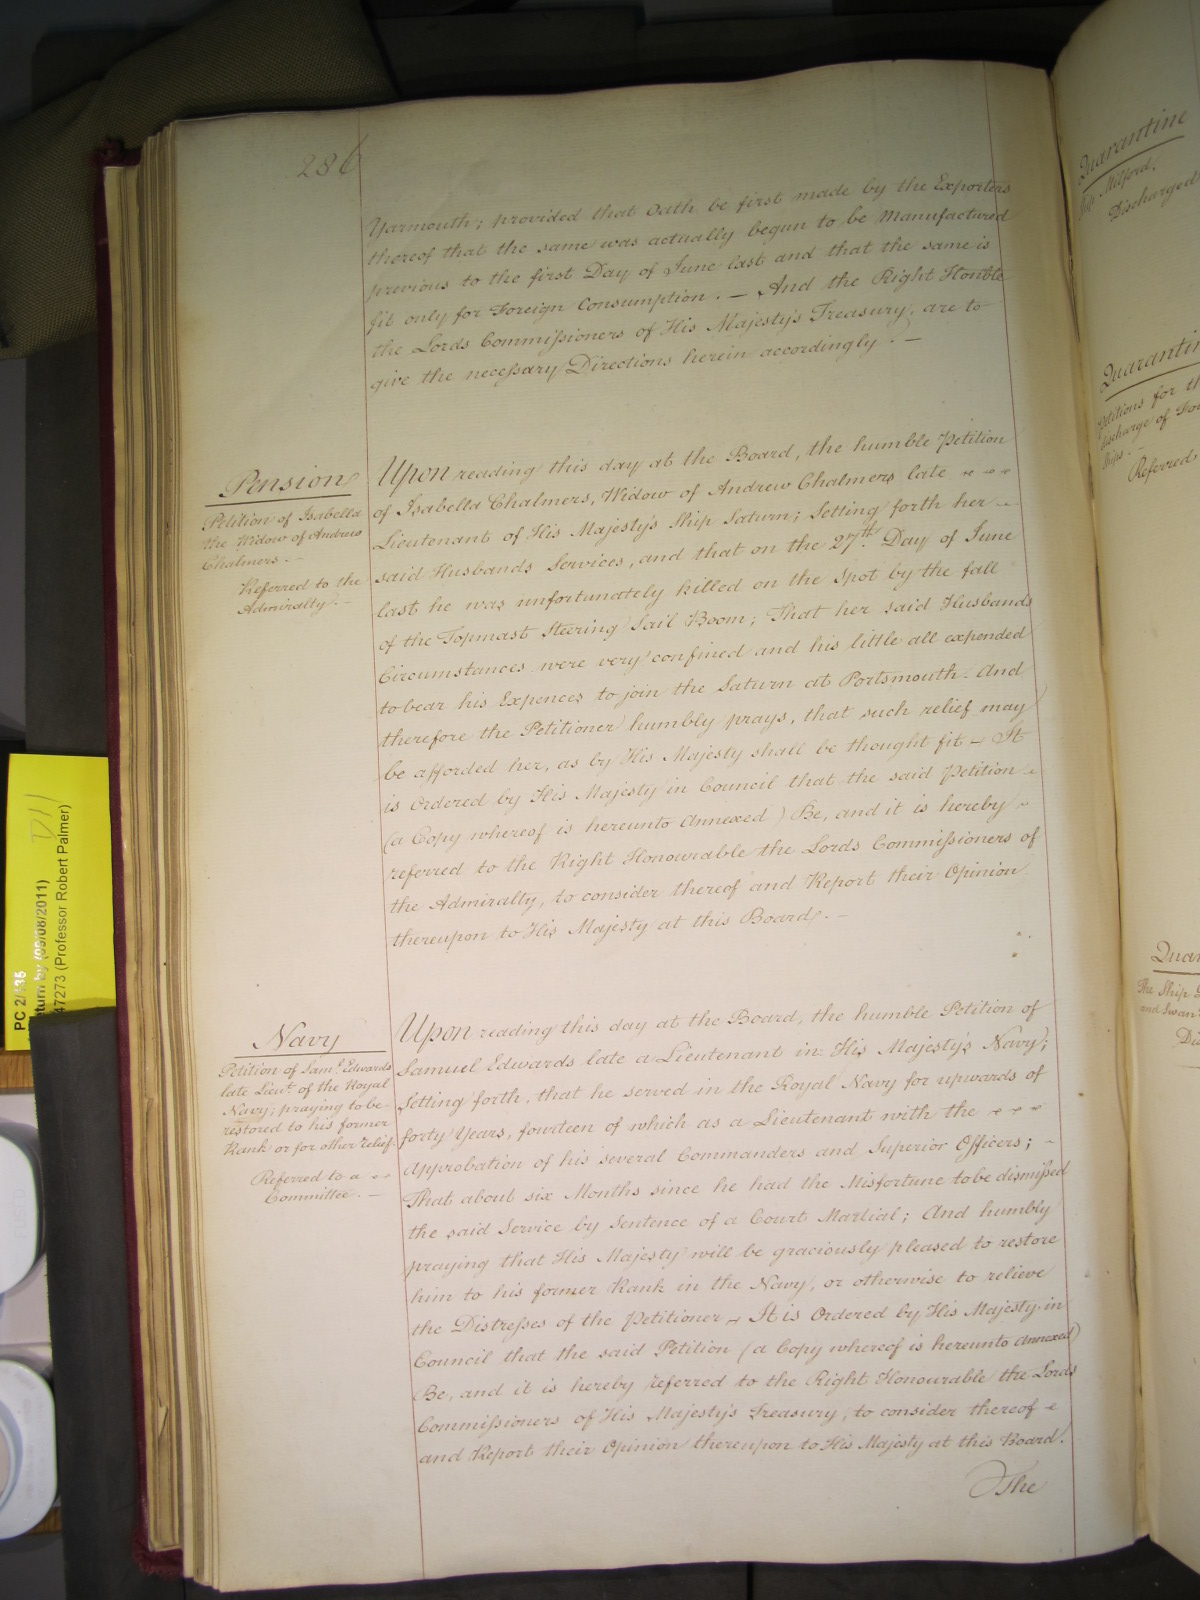 286
Yarmouth; provided that Oath be first made by the Exporters
thereof that the same was actually begun to be Manufactured
previous to the first Day of June last and that the same is
fit only for Foreign Consumption. — And the Right Honble
the Lords Commissioners of His Majesty's Treasury, are to
give the necessary Directions herein accordingly. —
Pension
Petition of Isabella
the Widow of Andrew
Chalmers. —
Referred to the
Admiralty. —
Upon reading this day at the Board, the humble Petition
of Isabella Chalmers, Widow of Andrew Chalmers late
Lieutenant of His Majesty's Ship Saturn; Setting forth her
said Husbands Services, and that on the 27th. Day of June
last he was unfortunately killed on the Spot by the fall
of the Topmast Steering Sail Boom; That her said Husbands
Circumstances were very confined and his little all expended
to bear his Expences to join the Saturn at Portsmouth. And
therefore the Petitioner humbly prays, that such relief may
be afforded her, as by His Majesty shall be thought fit — It
is Ordered by His Majesty in Council that the said Petition
(a Copy whereof is hereunto Annexed) Be, and it is hereby
referred to the Right Honourable the Lords Commissioners of
the Admiralty, to consider thereof and Report their Opinion
thereupon to His Majesty at this Board. —
Navy
Petition of Saml. Edwards
late Lieut. of the Royal
Navy; praying to be
restored to his former
Rank or for other relief.
Referred to a
Committee. —
Upon reading this day at the Board, the humble Petition of
Samuel Edwards late a Lieutenant in His Majesty's Navy;
Setting forth, that he served in the Royal Navy for upwards of
forty Years, fourteen of which as a Lieutenant with the
Approbation of his several Commanders and Superior Officers;
That about six Months since he had the Misfortune to be dismissed
the said Service by Sentence of a Court Martial; And humbly
praying that His Majesty will be graciously pleased to restore
him to his former Rank in the Navy, or otherwise to relieve
the Distresses of the Petitioner — It is Ordered by His Majesty in
Council that the said Petition (a Copy whereof is hereunto Annexed)
Be, and it is hereby referred to the Right Honourable the Lords
Commissioners of His Majesty's Treasury, to consider thereof
and Report their Opinion thereupon to His Majesty at this Board.
The
PC 2/135
turn by (09/08/2011)
47273 (Professor Robert Palmer)
D11
Quarantine
Milford.
Discharged
Quarantine
Petitions for th
discharge of
Ships.
Referred
Quar
The Ship
and Swan
Dis